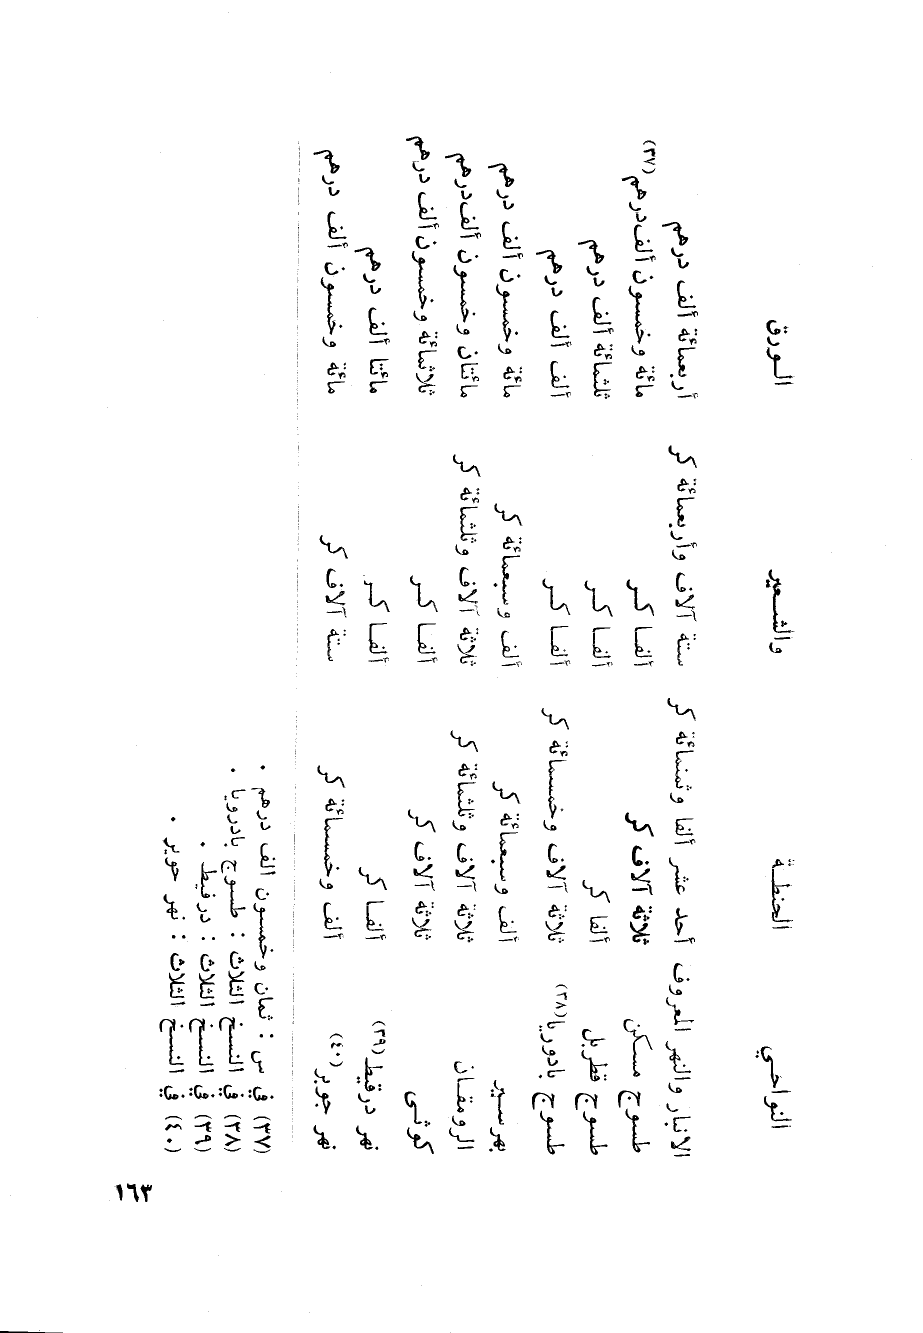 النواحي الحنطة والشعير الورق
الانبار والنهر المعروف أحد عشر ألفا وثمنمائة كر ستة آلاف وأربعمائة كر أربعمائة ألف درهم
طسوج مسكن ثلاثة آلاف كر ألفا كر مائة وخمسون ألف درهم(٣٧)
طسوج قطربل ألفا كر ألفا كر ثلثمائة ألف درهم
طسوج بادوريا(٣٨) ثلاثة آلاف وخمسمائة كر ألفا كر ألف ألف درهم
بهرسير ألف وسبعمائة كر ألف وسبعمائة كر مائة وخمسون ألف درهم
الرومقان ثلاثة آلاف وثلثمائة كر ثلاثة آلاف وثلثمائة كر مائتان وخمسون ألف درهم
كوثى ثلاثة آلاف كر ألفا كر ثلاثمائة وخمسون ألف درهم
نهر درقيط(٣٩) ألفا كر ألفا كر مائتا ألف درهم
نهر جوبر(٤٠) ألف وخمسمائة كر ستة آلاف كر مائة وخمسون ألف درهم
(٣٧) في س : ثمان وخمسون الف درهم .
(٣٨) في النسخ الثلاث : طسوج بادرويا .
(٣٩) في النسخ الثلاث : درفيط .
(٤٠) في النسخ الثلاث : نهر حوير .
١٦٣